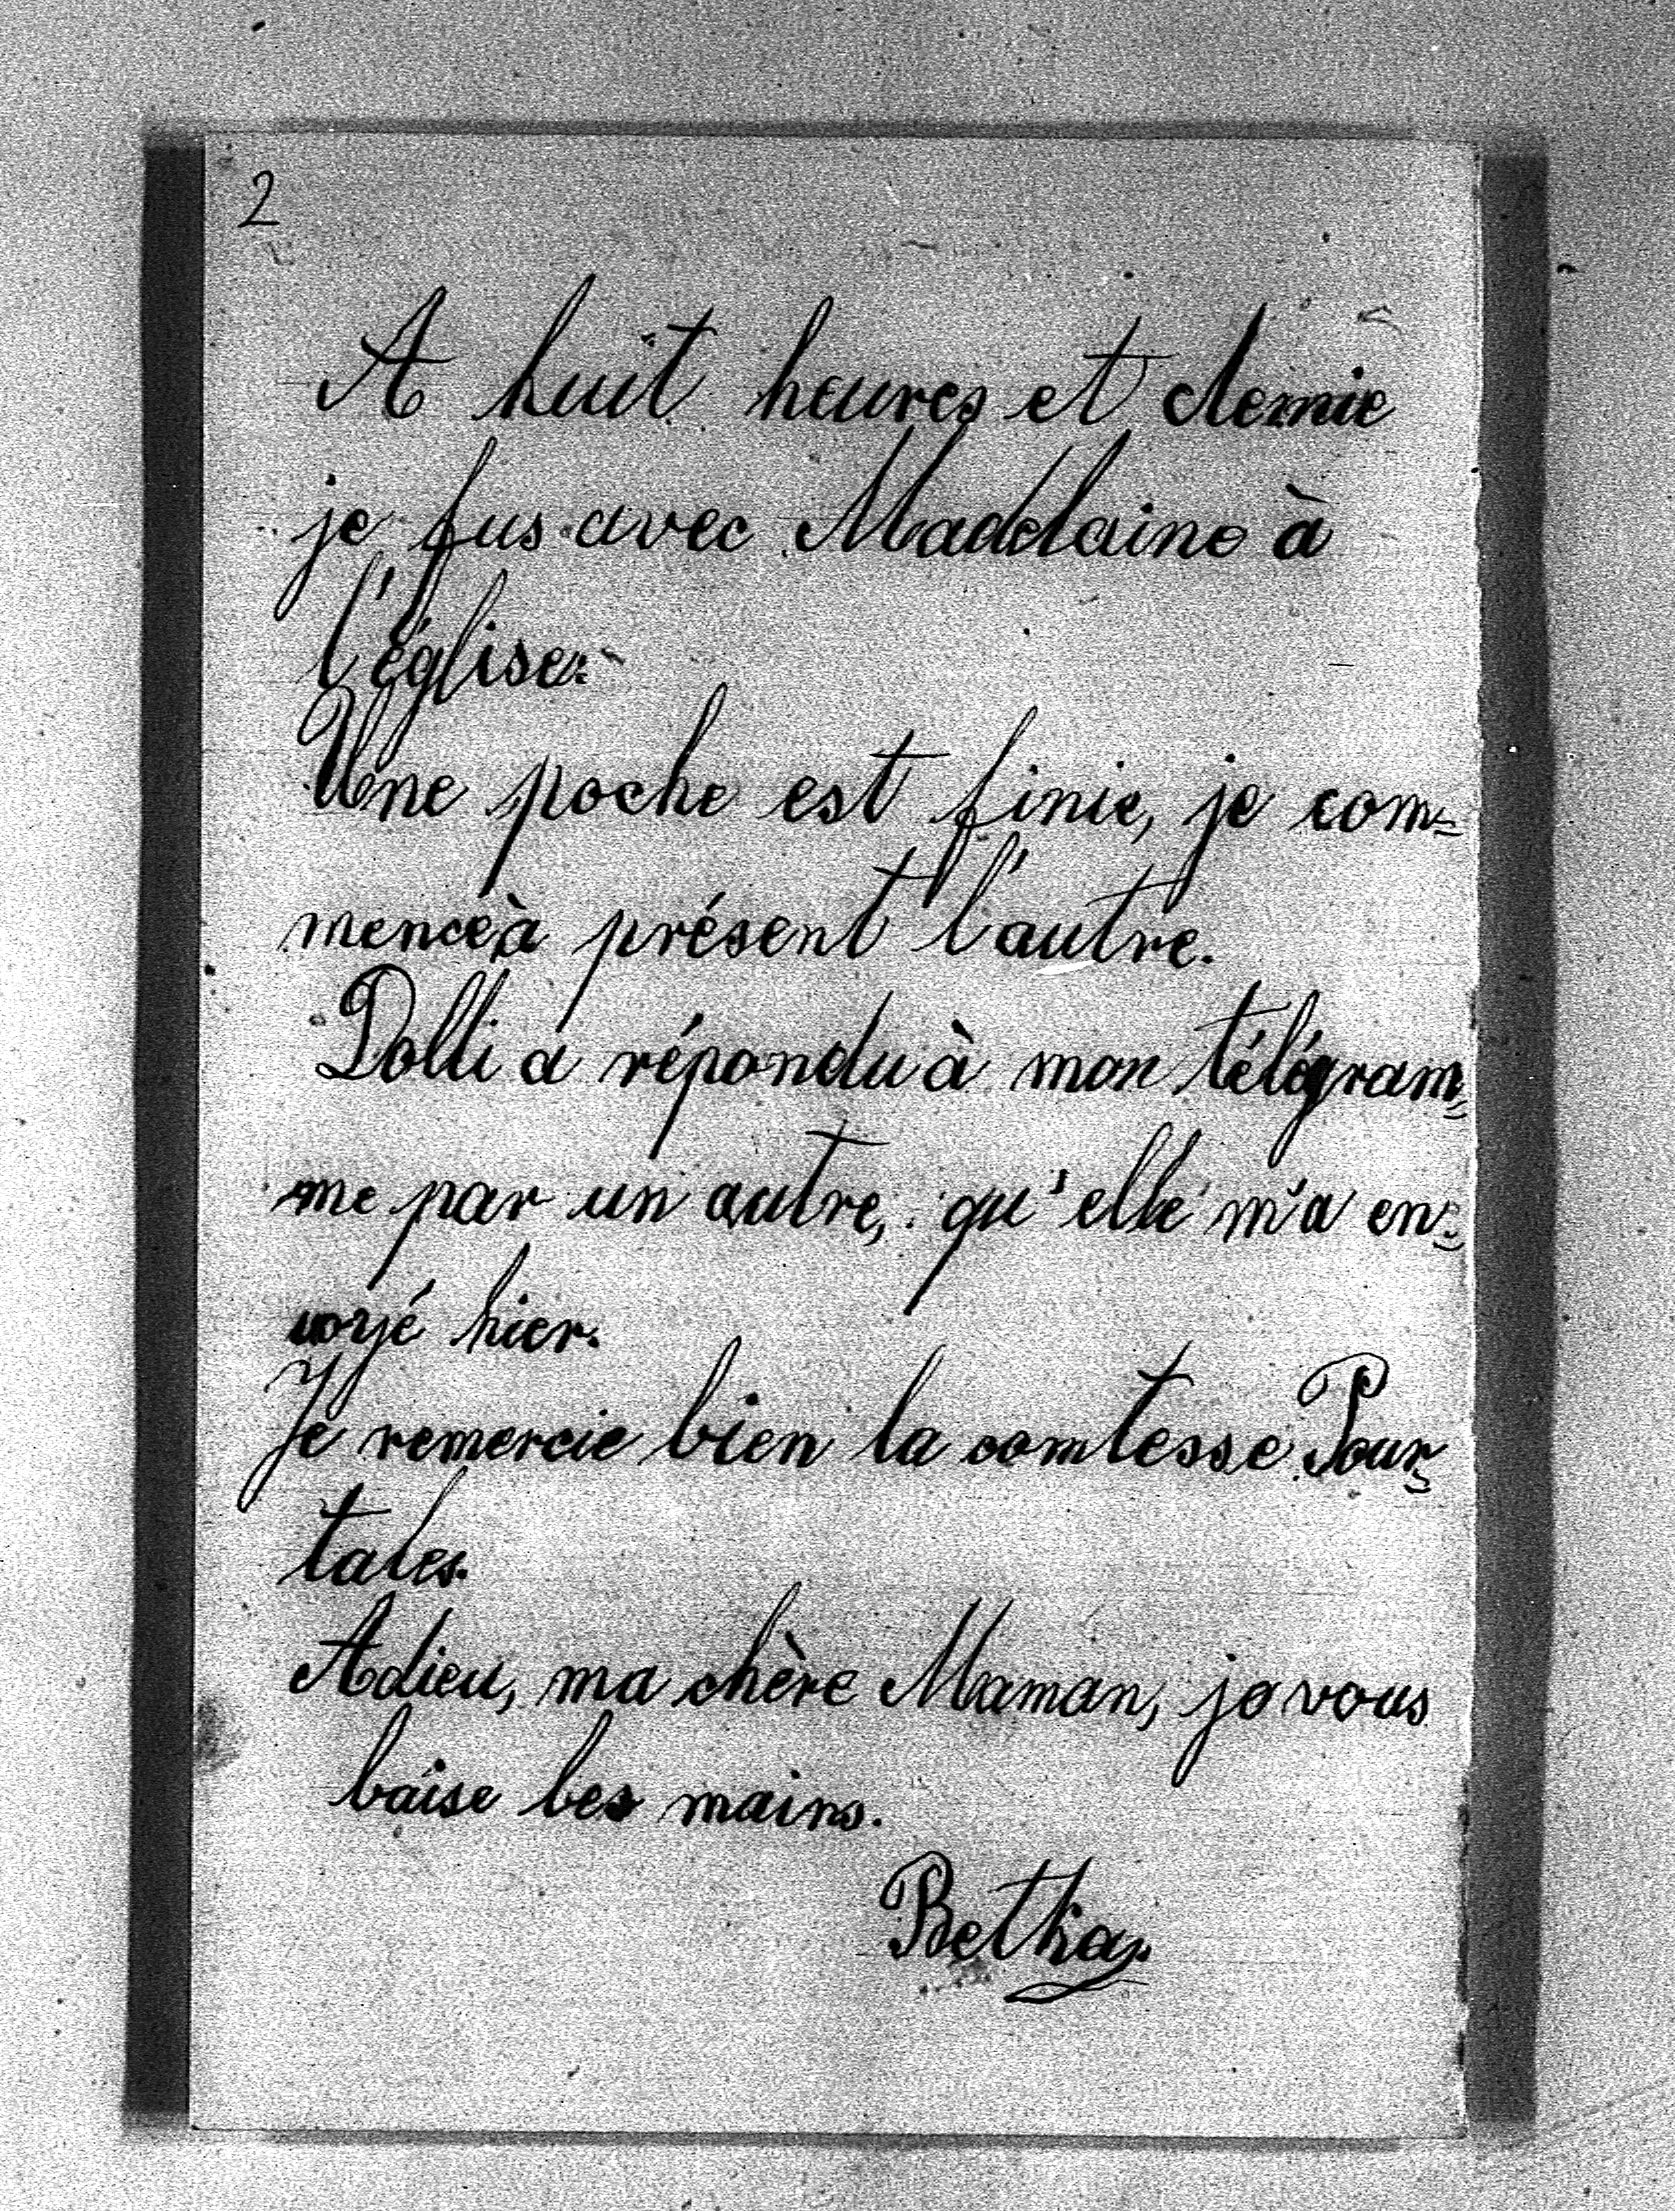 2
A huit heures et demie
je fus avec Madelaine à
l'église.
Une poche est finie, je com=
mence à présent l'autre.
Dolli a répondu à mon télégram=
me par un autre, qu'elle m'a en=
voyé hier.
Je remercie bien la comtesse Pour=
tales.
Adieu, ma chère Maman, je vous
baise les mains.
Betka.